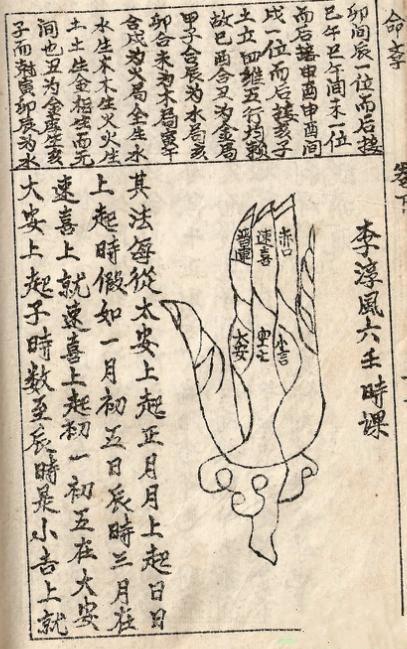 命李
卷下
卯間辰一位而后接
巳午巳午間未一位
而后接申酉申酉間
戌一位而后接亥子
土立四維五行均賴
故巳酉合丑为金局
甲子合辰为水局亥
卯合未为木局寅午
合戌为火局金生水
水生木木生火火生
土土生金相生而无
間也丑为金成生亥
子而射寅卯辰为水
李淳風六壬時課
赤口
速喜
畱連
小吉
空亡
大安
其法每從太安上起正月月上起日日
上起時假如一月初五日辰時三月在
速喜上就速喜上起初一初五在大安
大安上起子時数至辰時是小吉上就